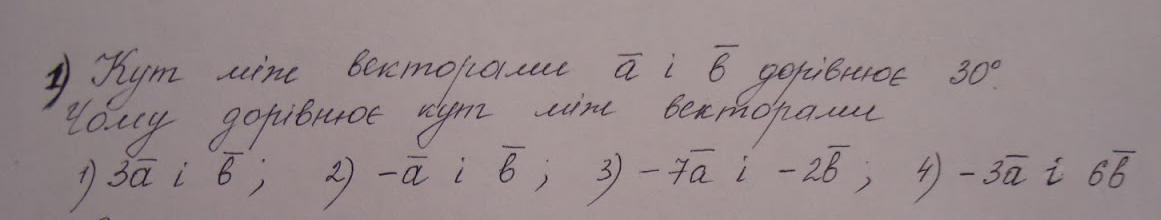 1) Кут між векторами a̅ і b̅ дорівнює 30°.
Чому дорівнює кут між векторами
1) 3a̅ і b̅ ; 2) -a̅ і b̅ ; 3) -7a̅ і -2b̅ ; 4) -3a̅ і 6b̅